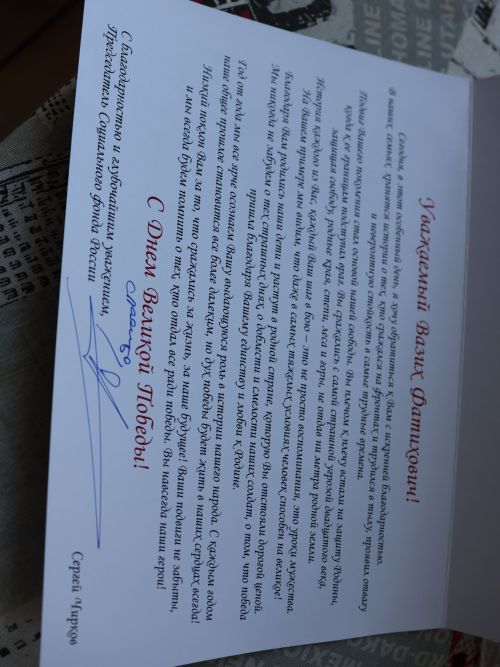 Уважаемый Вазих Фатихович!
Сегодня, в этот особенный день, я хочу обратиться к Вам с искренней благодарностью.
В наших семьях хранятся истории о тех, кто сражался на фронтах и трудился в тылу, проявил отвагу
и невероятную стойкость в самые трудные времена.
Подвиг Вашего поколения стал основой нашей свободы. Вы плечом к плечу встали на защиту Родины,
когда к ее границам подступил враг. Вы сражались с самой страшной угрозой двадцатого века,
защищая свободу, родные края, степи, леса и горы, не отдав ни метра родной земли.
История каждого из Вас, каждый Ваш шаг в бою – это не просто воспоминания, это уроки мужества.
На Вашем примере мы видим, что даже в самых тяжелых условиях человек способен на великое!
Благодаря Вам родились наши дети и растут в родной стране, которую Вы отстояли дорогой ценой.
Мы никогда не забудем о тех страшных днях, о доблести и смелости наших солдат, о том, что победа
пришла благодаря Вашему единству и любви к Родине.
Год от года мы все ярче осознаем Вашу выдающуюся роль в истории нашего народа. С каждым годом
наше общее прошлое становится все более далеким, но дух победы будет жить в наших сердцах всегда!
Низкий поклон Вам за то, что сражались за жизнь, за наше будущее! Ваши подвиги не забыты,
и мы всегда будем помнить о тех, кто отдал все ради победы. Вы навсегда наши герои!
С Днем Великой Победы!
С благодарностью и глубочайшим уважением,
Председатель Социального фонда России
Сергей Чирков